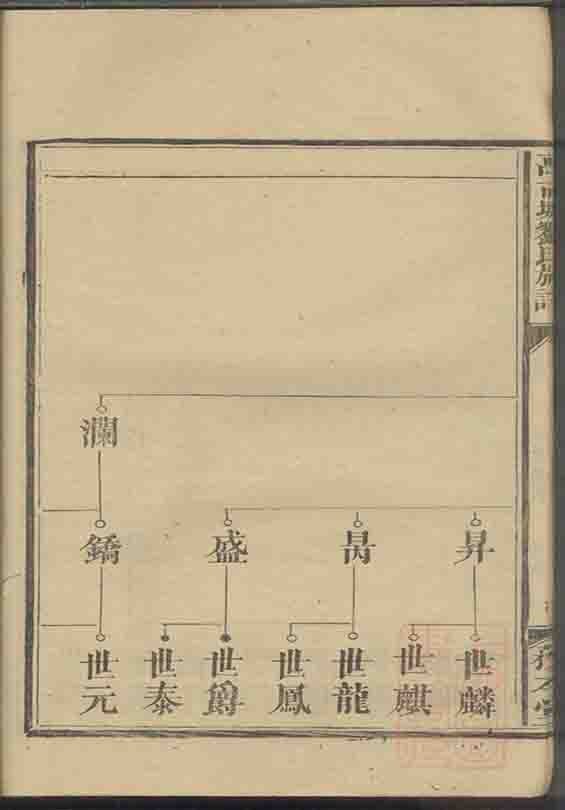 城劉氏族譜
瀾
昇
昺
盛
鐈
世麟
世麒
世龍
世鳳
世爵
世泰
世元